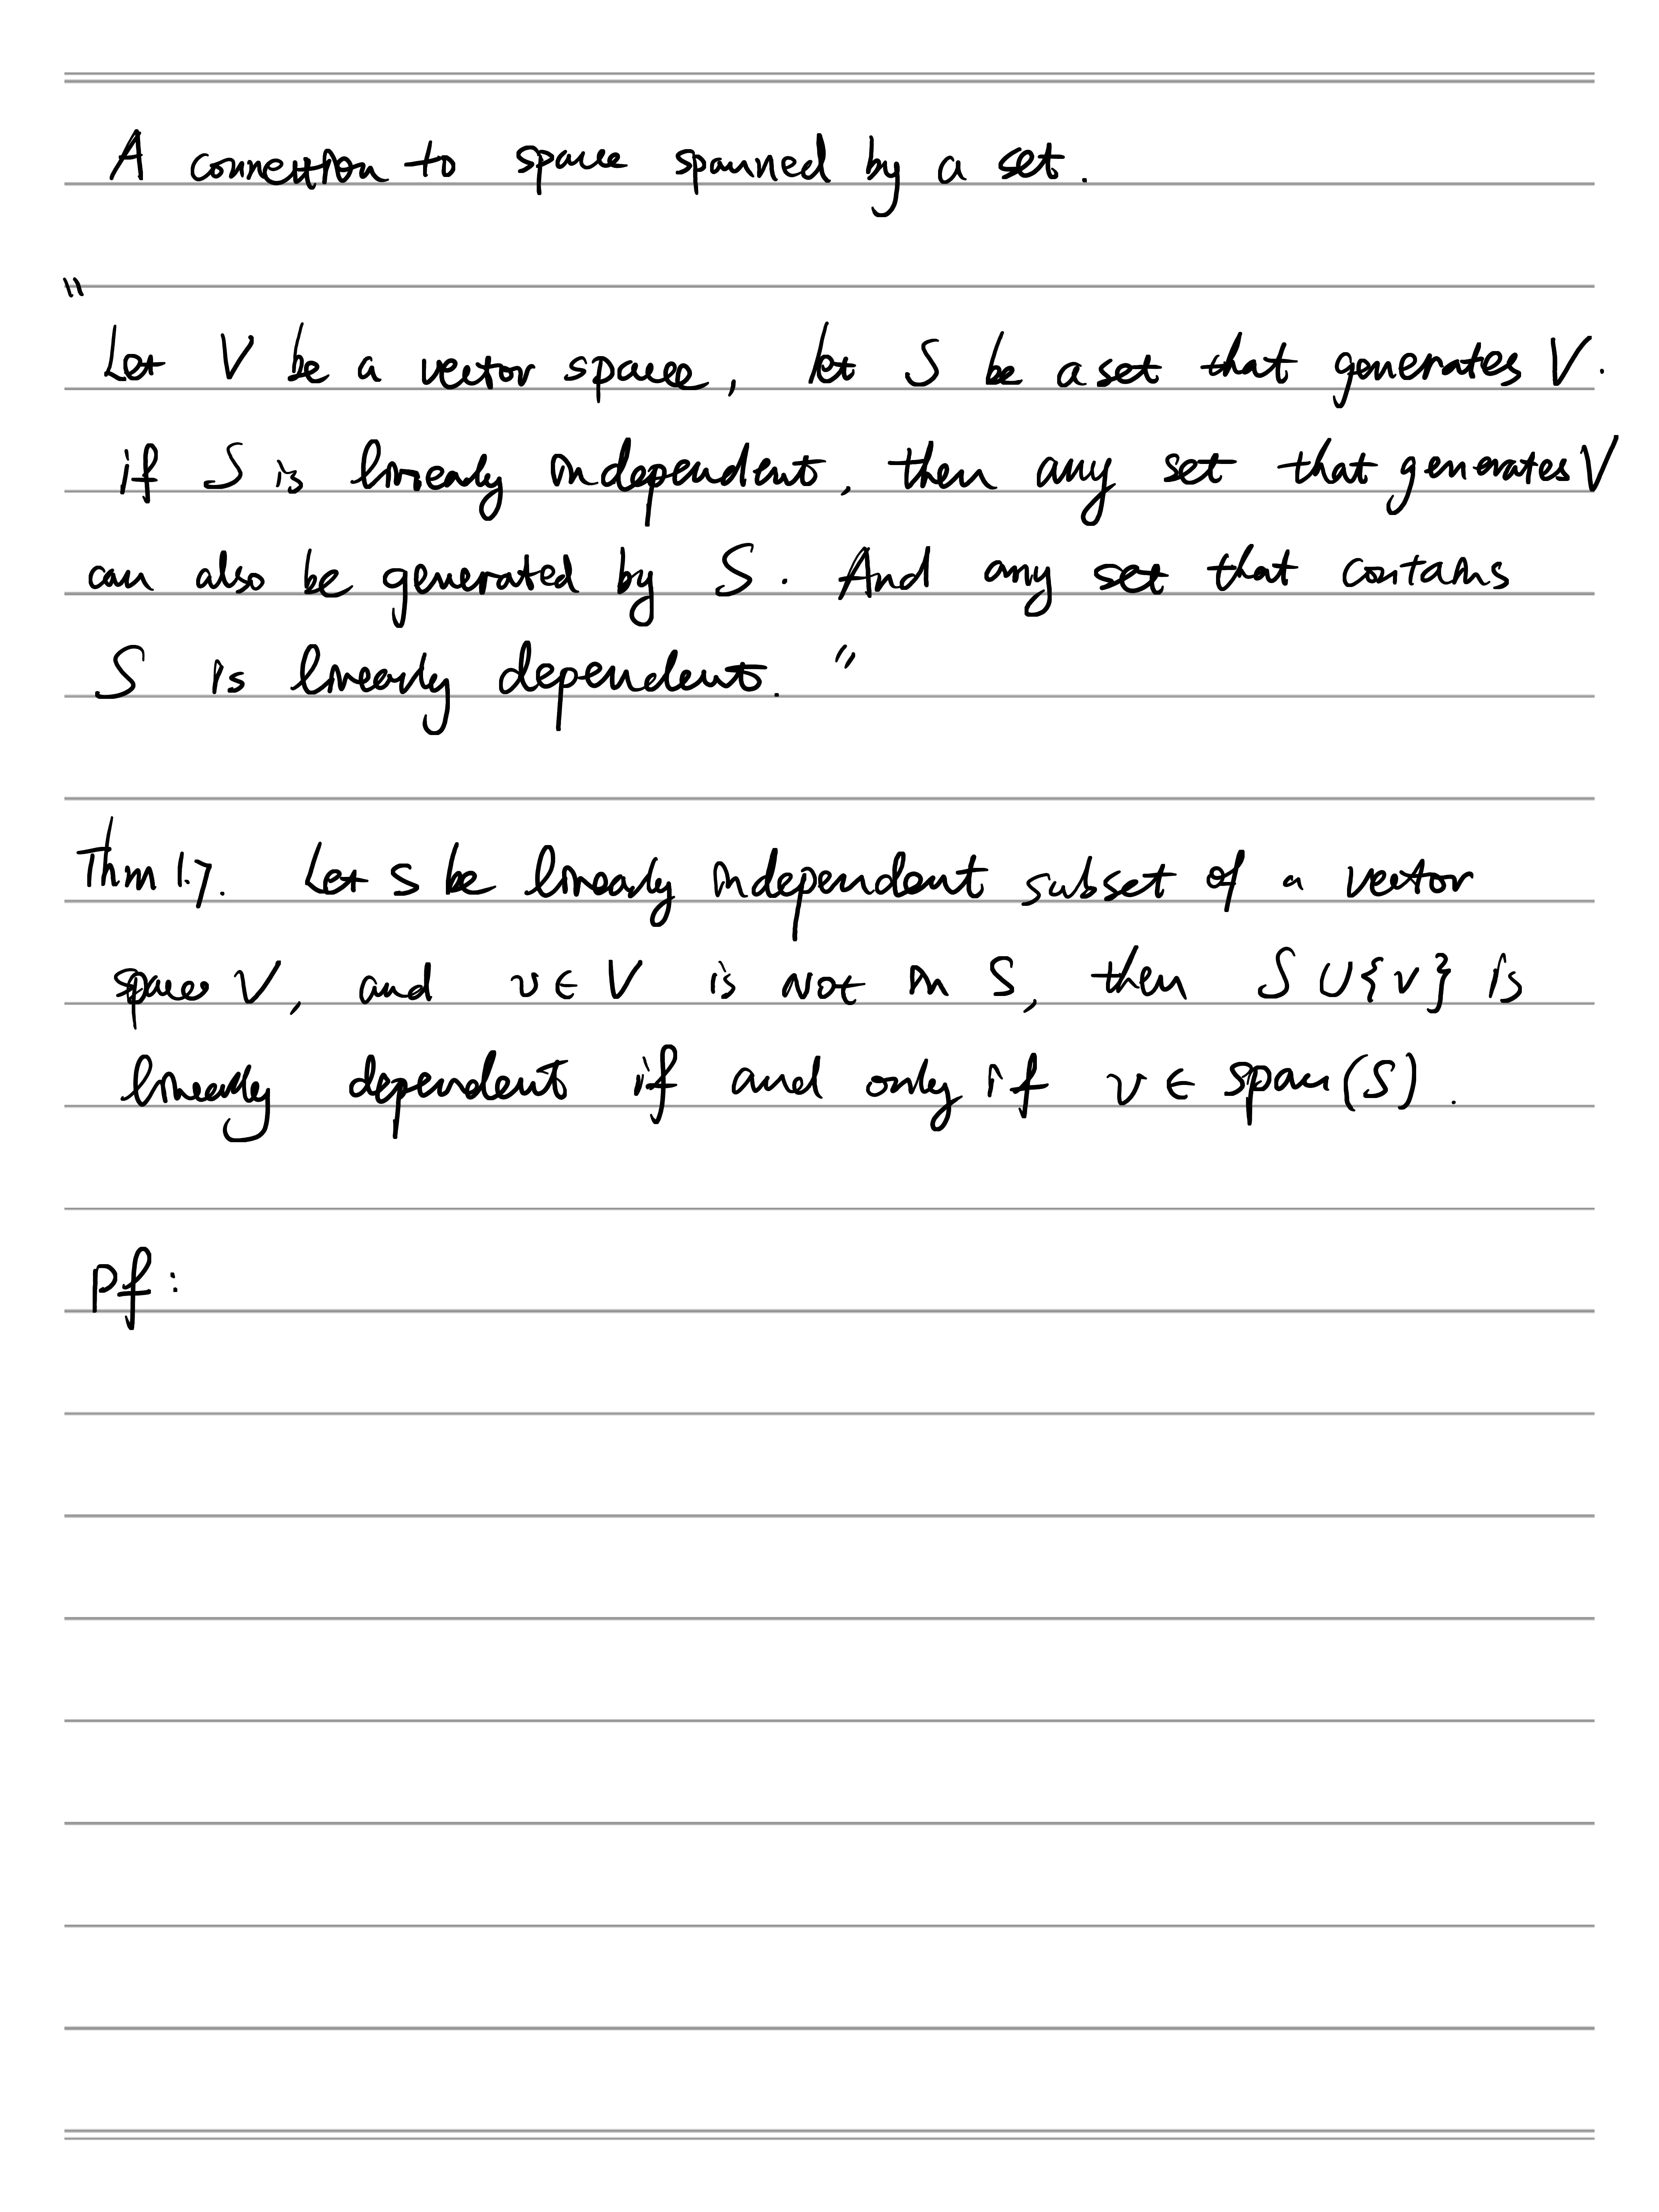 A connection to space spanned by a set.
"
Let V be a vector space, let S be a set that generates V.
if S is linearly independent, then any set that generates V
can also be generated by S. And any set that contains
S is linearly dependent."
Thm 1.7. Let S be linearly independent subset of a vector
space V, and v ∈ V is not in S, then S ∪ {v} is
linearly dependent if and only if v ∈ span(S).
pf: